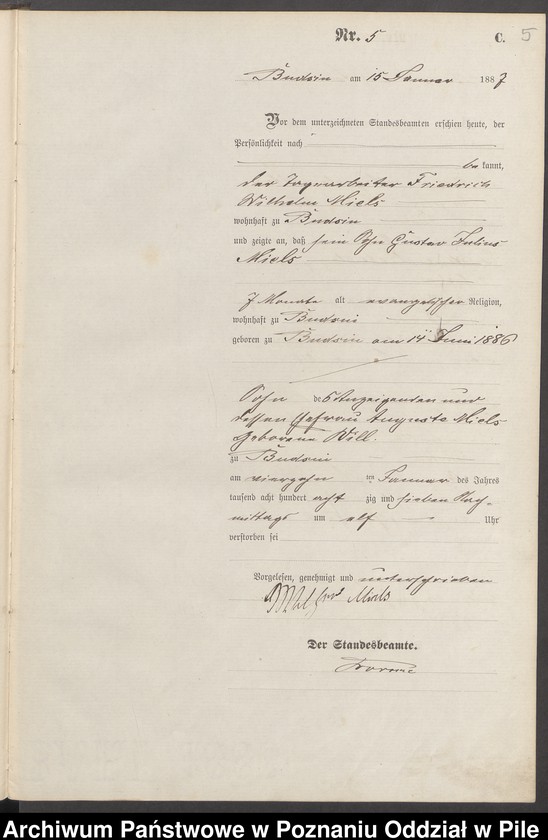 Nr. 5 C. 5
Budsin am 15 Januar 1887
Vor dem unterzeichneten Standesbeamten erschien heute, der
Persönlichkeit nach
be kannt,
der Tagearbeiter Friedrich
Wilhelm Miels
wohnhaft zu Budsin
und zeigte an, daß sein Sohn Gustav Julius
Miels
7 Monate alt evangelischer Religion,
wohnhaft zu Budsin
geboren zu Budsin am 14 Juni 1886
Sohn des Anzeigenden und
dessen Ehefrau Auguste Miels
geborene Will.
zu Budsin
am vierzehn ten Januar des Jahres
tausend acht hundert acht zig und sieben Nach-
mittags um elf Uhr
verstorben sei
Vorgelesen, genehmigt und unterschrieben
Miels
Der Standesbeamte.
Archiwum Państwowe w Poznaniu Oddział w Pile